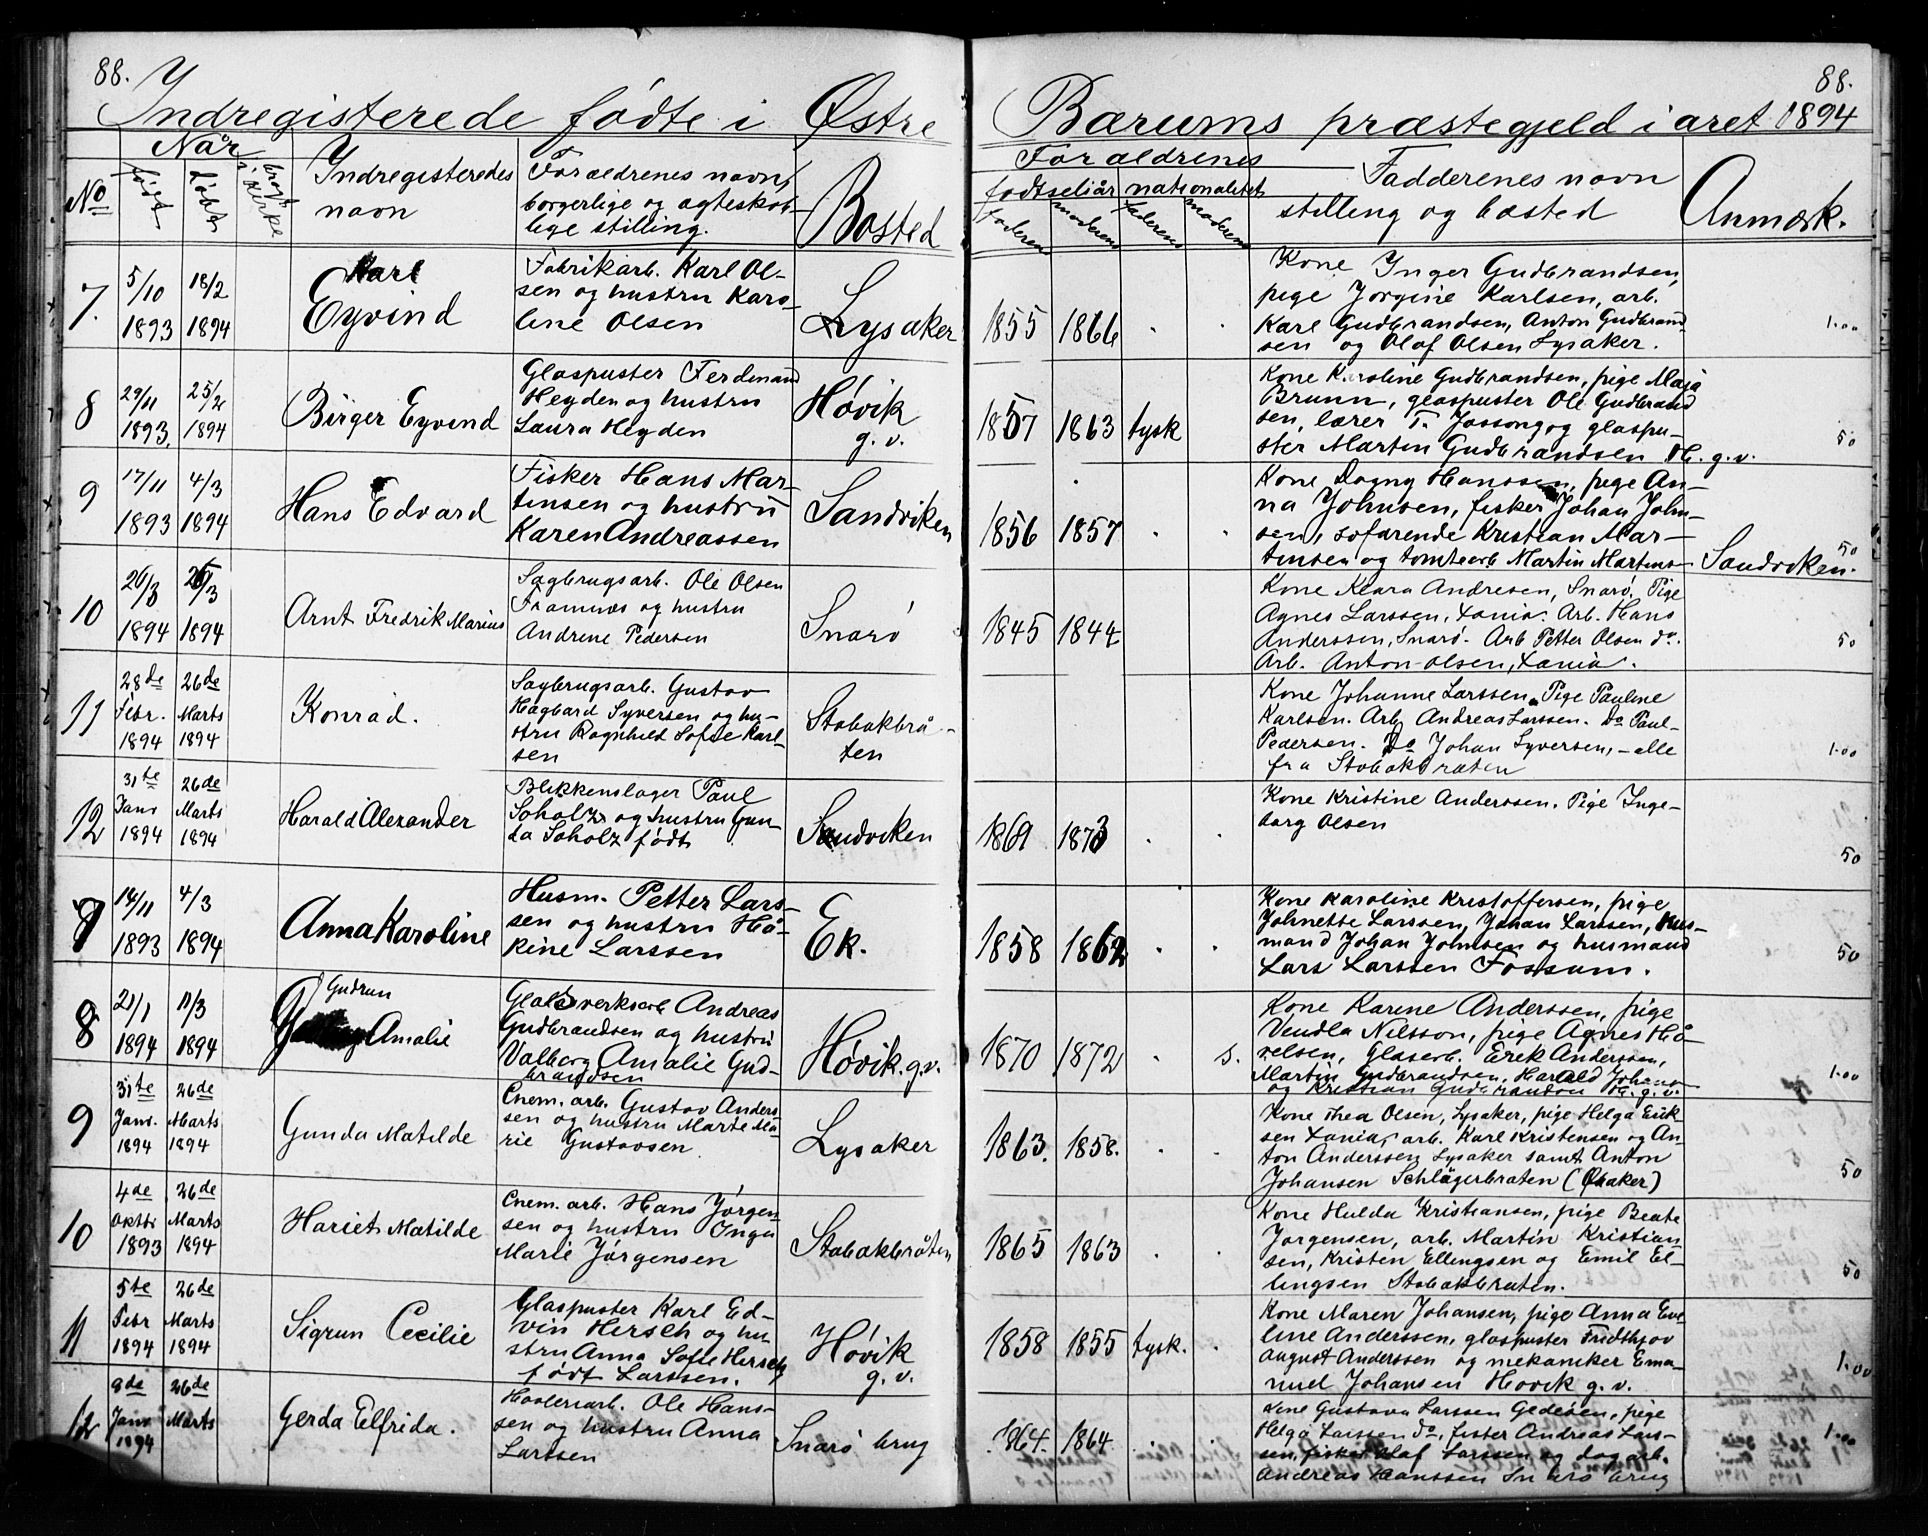 88.
88.
Indregisterede fødte i Østre Bærums præstegjeld i året 1894
No
Når
født
døbt
bragt i kirke
Indregisteredes
navn
Forældrenes navn,
borgerlige og ægteskab-
lige stilling.
Bosted
Forældrenes
fødselsår nationalitet
faderens moderens faderens moderens
Fadderenes navn
stilling og bosted
Anmærk.
7.
5/10
1893
18/2
1894
Karl
Eyvind
Fabrikarb. Karl Ol-
sen og hustru Karo-
line Olsen
Lysaker
1855 1866
Kone Inger Gudbrandsen,
pige Jørgine Karlsen, arb.
Karl Gudbrandsen, Anton Gudbrand
sen og Olaf Olsen Lysaker.
1.00
8
29/11
1893
25/2
1894
Birger Eyvind
Glaspuster Ferdinand
Heyden og hustru
Laura Heyden
Høvik
g. v.
1857 1863 tysk
Kone Karoline Gudbrandsen, pige Maja
Brunn, glaspuster Ole Gudbrand
sen, lærer T. Jossong og glaspu-
ster Martin Gudbrandsen H. g. v.
50
9
17/11
1893
4/3
1894
Hans Edvard
Fisker Hans Mar-
tinsen og hustru
Karen Andreassen
Sandviken
1856 1857
Kone Dagny Hanssen, pige An-
na Johnsen, fisker Johan John-
sen, søfarende Kristian Mar-
tinsen og tomtearb Martin Martins-
Sandviken.
50
10
26/3
1894
26/3
1894
Arnt Fredrik Marius
Sagbrugsarb. Ole Olsen
Framnæs og hustru
Andrene Pedersen
Snarø
1845 1844
Kone Klara Andresen, Snarø. Pige
Agnes Larssen, Xania. Arb. Hans
Anderssen, Snarø. Arb Petter Olsen do.
Arb. Anton Olsen, Xania.
50
11
28de
Febr.
1894
26de
Marts
1894
Konrad.
Sagbrugsarb. Gustav
Hagbard Syversen og hu-
stru Ragnhild Sofie Karl-
sen
Stabakbrå-
ten
Kone Johanne Larssen. Pige Pauline
Karlsen. Arb. Andreas Larssen. Do Paul
Pedersen. Do Johan Syversen, - alle
fra Stabakbråten
1.00
12
31te
Janr
1894
26de
Marts
1894
Harald Alexander
Blikkenslager Paul
Soholz og hustru Gun-
da Soholz født
Sandviken
1869 1873
Kone Kristine Anderssen. Pige Inge-
borg Olsen
50
7
14/11
1893
4/3
1894
Anna Karoline
Husm. Petter Lars-
sen og hustru Hå-
kine Larssen
Ek.
1858 1862
Kone Karoline Kristoffersen, pige
Johnette Larssen, Johan Larssen, hus-
mand Johan Johnsen og husmand
Lars Larssen Fossum.
50
8
21/1
1894
11/3
1894
Gudrun
Amalie
Glasverksarb Andreas
Gudbrandsen og hustru
Valborg Amalie Gud-
brandsen
Høvik. g.v.
1870 1872 s.
Kone Karine Anderssen, pige
Vendla Nilsson, pige Agnes Hå-
relsen, Glasarb. Erek Anderssen,
Martin Gudbrandsen, Harald Johans
og Kristian Gudbrandsen H. g. v.
1.00
9
31te
Janr.
1894
26de
Marts
1894
Gunda Matilde
Cnem. arb. Gustav Anders-
sen og hustru Marte Ma-
rie Gustavsen
Lysaker
1863. 1858.
Kone Thea Olsen, Lysaker, pige Helga Erik
sen Xania, arb. Karl Kristensen og An-
ton Anderssen Lysaker samt Anton
Johansen Schlägerbraten (Øraker)
50
10
4de
Oktbr
1893
26de
Marts
1894
Hariet Matilde
Cnem. arb. Hans Jørgen-
sen og hustru Inga
Marie Jørgensen
Stabakbråten
1865 1863
Kone Hulda Kristiansen, pige Beate
Jørgensen, arb. Martin Kristian
sen, Kristen Ellingsen og Emil El-
lingsen Stabakbraten.
50
11
5te
Febr
1894
26de
Marts
1894
Sigrun Cecilie
Glaspuster Karl Ed-
vin Hersch og hu
stru Anna Sofie Hersch
født Larssen.
Høvik
g. v.
1858 1855 tysk.
Kone Maren Johansen, pige Anna Eve
line Anderssen, glaspuster Fridthjov
August Anderssen og mekaniker Ema-
nuel Johansen Høvik g. v.
1.00
12
9de
Janr
1894
26de
Marts
Gerda Elfrida.
Høvleriarb. Ole Hans-
sen og hustru Anna
Larssen
Snarø brug
1864. 1864
Kone Gustava Larssen Gedeøen, pige
Helga Larssen do, fisker Andreas Lars-
sen, fisker Olaf Larssen og dag arb.
Andreas Hanssen Snarø brug
1.00